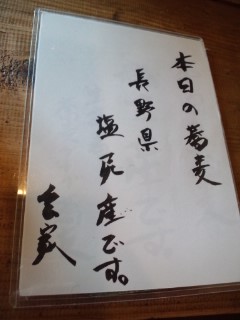 本日の蕎麦
長野県
塩尻産です。